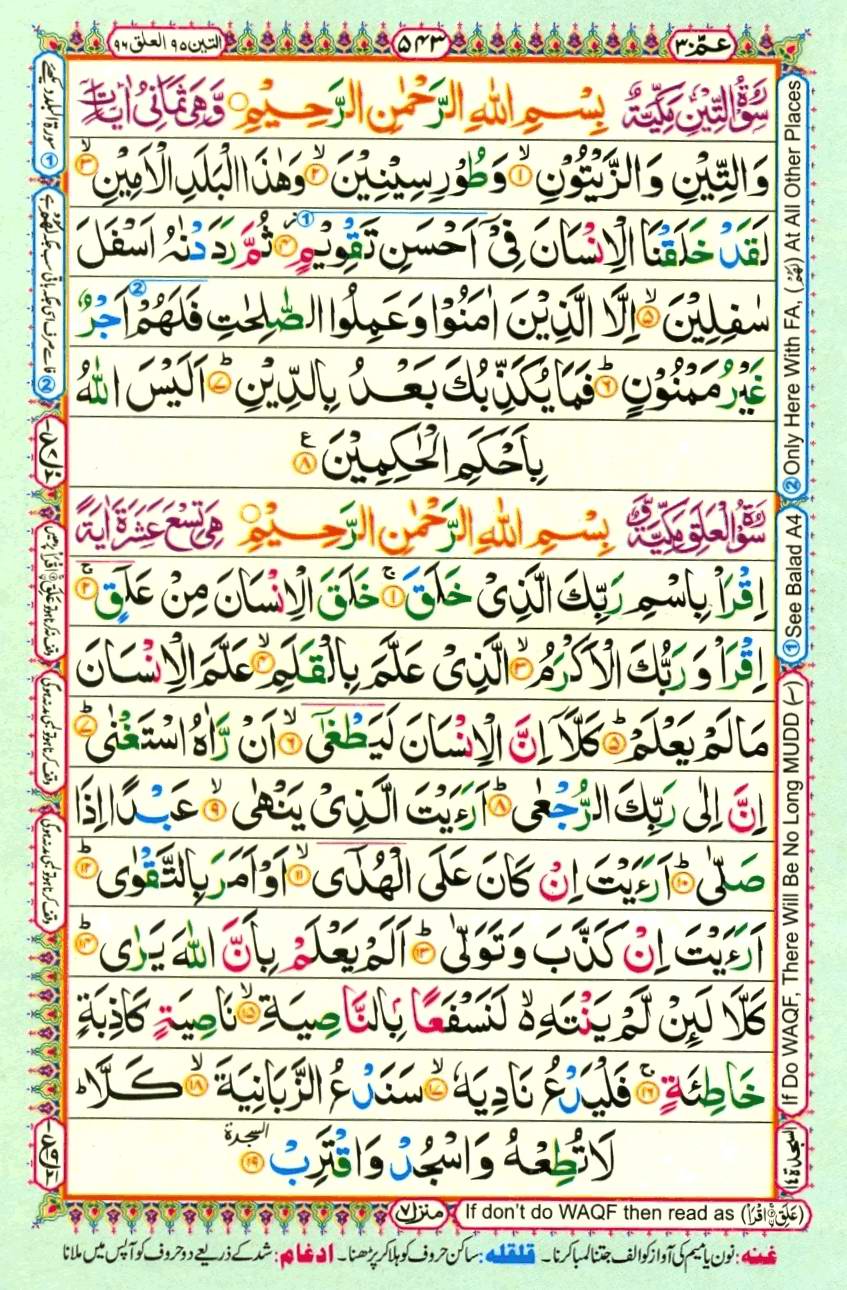 عمّ ٣٠
٥٤٣
التين ٩٥ العلق ٩٦
سُوْرَةُ التِّيْنِ مَكِّيَّةٌ بِسْمِ اللّٰهِ الرَّحْمٰنِ الرَّحِيْمِ وَّهِىَ ثَمَانِىْ اٰيَاتٍ
وَالتِّيْنِ وَالزَّيْتُوْنِ ۙ‏﴿۱﴾ وَطُوْرِ سِيْنِيْنَ ۙ‏﴿۲﴾ وَهٰذَا الْبَلَدِ الْاَمِيْنِ ۙ‏﴿۳﴾
لَقَدْ خَلَقْنَا الْاِنْسَانَ فِىْۤ اَحْسَنِ تَقْوِيْمٍ ۫‏﴿۴﴾ ① ثُمَّ رَدَدْنٰهُ اَسْفَلَ
سٰفِلِيْنَ ۙ‏﴿۵﴾ اِلَّا الَّذِيْنَ اٰمَنُوْا وَعَمِلُوا الصّٰلِحٰتِ ② فَلَهُمْ اَجْرٌ
غَيْرُ مَمْنُوْنٍ ؕ‏﴿۶﴾ فَمَا يُكَذِّبُكَ بَعْدُ بِالدِّيْنِ ؕ‏﴿۷﴾ اَلَيْسَ اللّٰهُ
بِاَحْكَمِ الْحٰكِمِيْنَ ﴿۸﴾ ع
سُوْرَةُ الْعَلَقِ مَكِّيَّةٌ وَّ بِسْمِ اللّٰهِ الرَّحْمٰنِ الرَّحِيْمِ هِىَ تِسْعَ عَشَرَةَ اٰيَةً
اِقْرَاْ بِاسْمِ رَبِّكَ الَّذِىْ خَلَقَ ۚ‏﴿۱﴾ خَلَقَ الْاِنْسَانَ مِنْ عَلَقٍ ۚ‏﴿۲﴾
اِقْرَاْ وَرَبُّكَ الْاَكْرَمُ ۙ‏﴿۳﴾ الَّذِىْ عَلَّمَ بِالْقَلَمِ ۙ‏﴿۴﴾ عَلَّمَ الْاِنْسَانَ
مَا لَمْ يَعْلَمْ ؕ‏﴿۵﴾ كَلَّاۤ اِنَّ الْاِنْسَانَ لَيَطْغٰٓى ۙ‏﴿۶﴾ اَنْ رَّاٰهُ اسْتَغْنٰى ؕ‏﴿۷﴾
اِنَّ اِلٰى رَبِّكَ الرُّجْعٰى ؕ‏﴿۸﴾ اَرَءَيْتَ الَّذِىْ يَنْهٰى ۙ‏﴿۹﴾ عَبْدًا اِذَا
صَلّٰى ؕ‏﴿۱۰﴾ اَرَءَيْتَ اِنْ كَانَ عَلَى الْهُدٰٓى ۙ‏﴿۱۱﴾ اَوْ اَمَرَ بِالتَّقْوٰى ؕ‏﴿۱۲﴾
اَرَءَيْتَ اِنْ كَذَّبَ وَتَوَلّٰى ؕ‏﴿۱۳﴾ اَلَمْ يَعْلَمْ بِاَنَّ اللّٰهَ يَرٰى ؕ‏﴿۱۴﴾
كَلَّا لَئِنْ لَّمْ يَنْتَهِ ۙ لَنَسْفَعًۢا بِالنَّاصِيَةِ ۙ‏﴿۱۵﴾ نَاصِيَةٍ كَاذِبَةٍ
خَاطِئَةٍ ۚ‏﴿۱۶﴾ فَلْيَدْعُ نَادِيَهٗ ۙ‏﴿۱۷﴾ سَنَدْعُ الزَّبَانِيَةَ ۙ‏﴿۱۸﴾ كَلَّا ؕ
لَا تُطِعْهُ وَاسْجُدْ وَاقْتَرِبْ ﴿۱۹﴾ السجدة
② Only Here With FA, (لَهُمْ) At All Other Places
① See Balad A4
If Do WAQF, There Will Be No Long MUDD (~)
السجدة ١٤
① سورۃ البلد دیکھئے
منزل ٧
If don't do WAQF then read as (عَلَقِنِ اقْرَاْ)
غنه: نون یا میم کی آواز کو الف جتنا لمبا کرنا۔ قلقله: ساکن حروف کو ہلا کر پڑھنا۔ ادغام: شد کے ذریعے دو حروف کو آپس میں ملانا